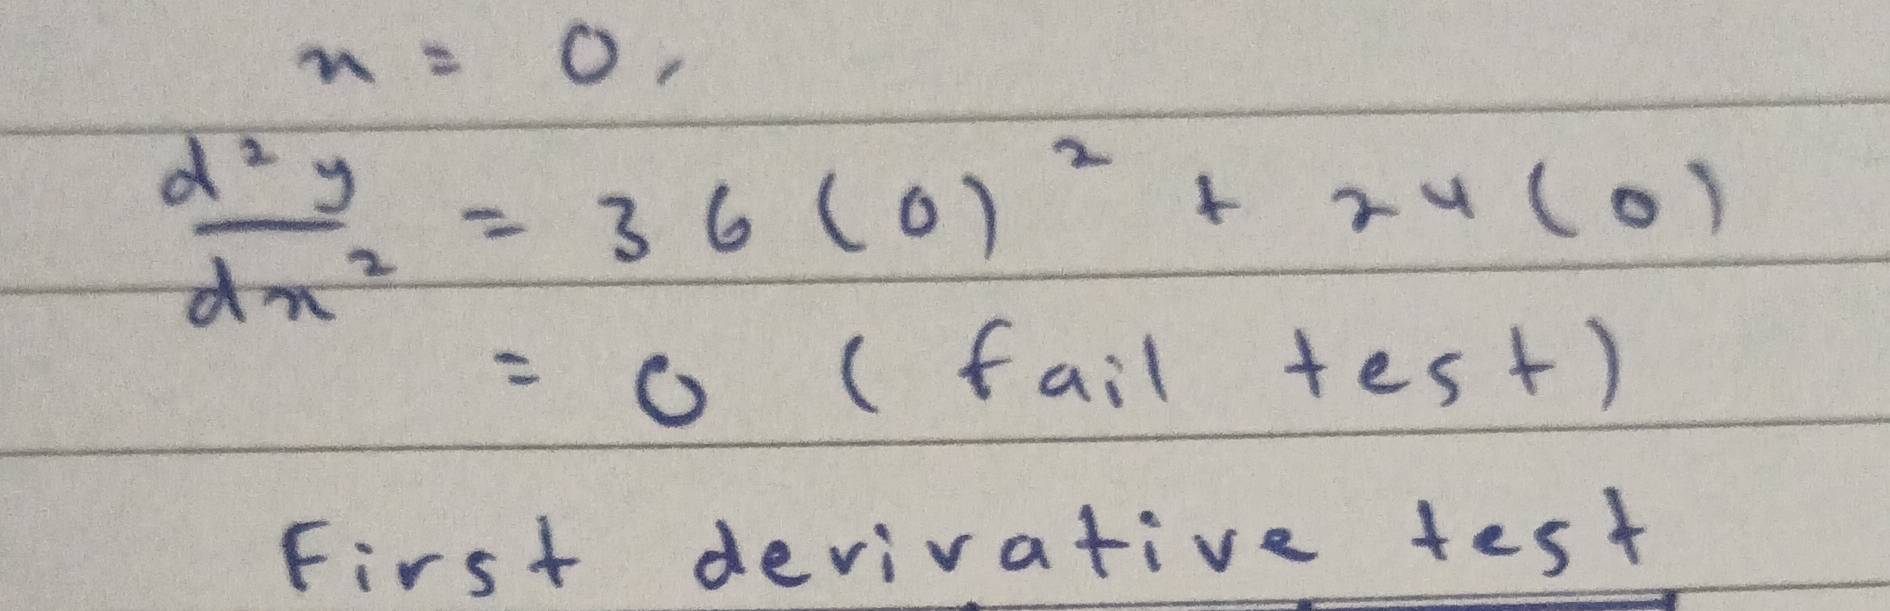 x = 0,
d²y/dx² = 36(0)² + 24(0)
= 0 (fail test)
First derivative test